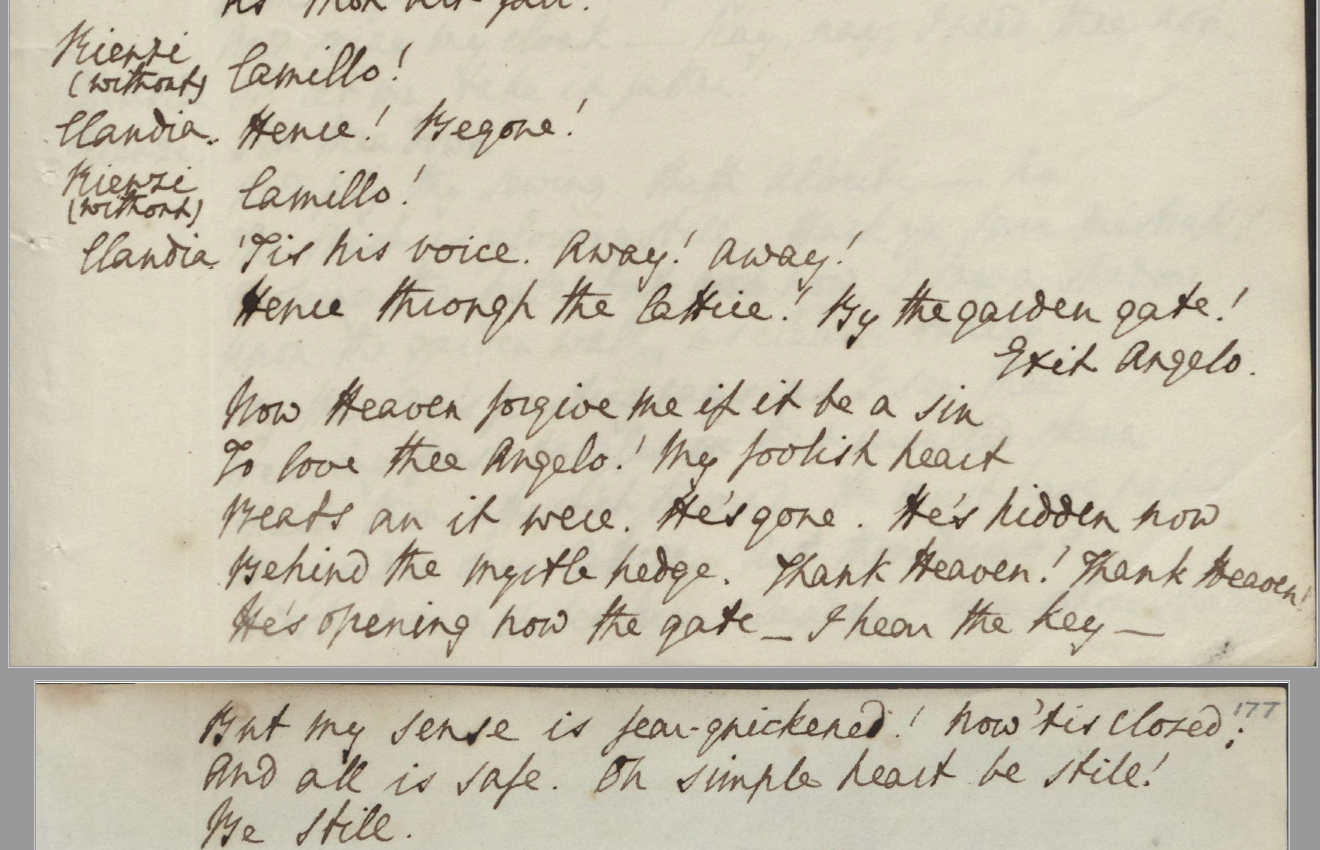 Rienzi
(without) Camillo!
Claudia. Hence! Begone!
Rienzi
(without) Camillo!
Claudia. 'Tis his voice. Away! Away!
Hence through the lattice! By the garden gate!
Exit Angelo.
Now Heaven forgive me if it be a sin
To love thee Angelo! My foolish heart
Beats an it were. He's gone. He's hidden now
Behind the myrtle hedge. Thank Heaven! Thank Heaven!
He's opening now the gate – I hear the key –
177
But my sense is fear-quickened! Now 'tis closed;
And all is safe. Oh simple heart be still!
Be still.